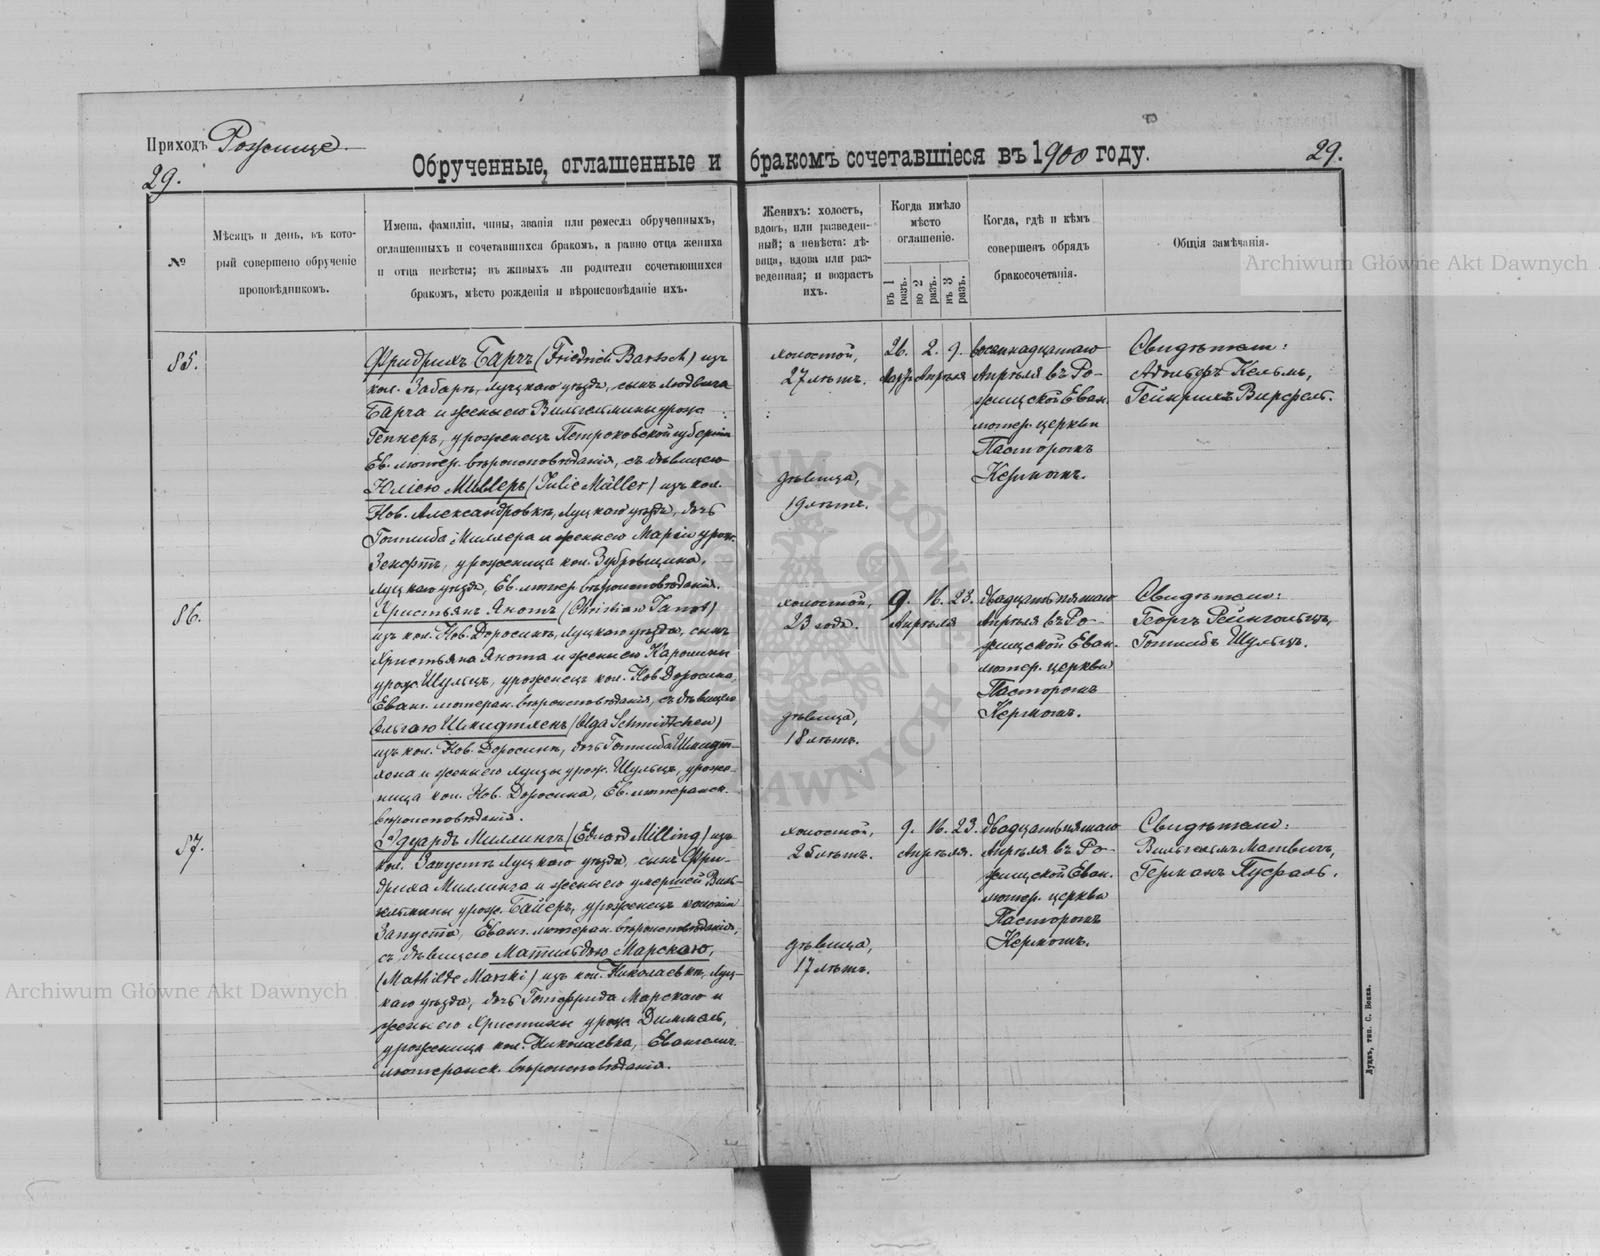 Приходъ Рожище
29.
Обрученные, оглашенные и бракомъ сочетавшіеся въ 1900 году.
29.
№
Мѣсяцъ и день, въ кото-
рый совершено обрученіе
проповѣдникомъ.
Имена, фамиліи, чины, званія или ремесла обрученныхъ,
оглашенныхъ и сочетавшихся бракомъ, а равно отца жениха
и отца невѣсты; въ живыхъ ли родители сочетающихся
бракомъ, мѣсто рожденія и вѣроисповѣданіе ихъ.
Женихъ: холостъ,
вдовъ, или разведен-
ный; а невѣста: дѣ-
вица, вдова или раз-
веденная; и возрастъ
ихъ.
Когда имѣло
мѣсто
оглашеніе.
въ 1
разъ.
во 2
разъ.
въ 3
разъ.
Когда, гдѣ и кѣмъ
совершенъ обрядъ
бракосочетанія.
Общія замѣчанія.
Archiwum Główne Akt Dawnych
85.
Фридрихъ Барчъ (Friedrich Bartsch) изъ
кол. Забара, Луцкаго уѣзда, сынъ Людвига
Барча и жены его Вильгельмины урож.
Геннеръ, уроженецъ Петроковской губерніи
Ев. лютер. вѣроисповѣданія, съ дѣвицею
Юліею Миллеръ (Julie Müller) изъ кол.
Нов. Александровка, Луцкаго уѣзда, дочь
Готлиба Миллера и жены его Маріи урож.
Зенфтъ, уроженица кол. Зубровщина,
Луцкаго уѣзда, Ев. лютер. вѣроисповѣданія.
холостой,
27 лѣтъ.
дѣвица,
19 лѣтъ.
26. 2. 9.
Март. Апрѣля
восемнадцатаго
Апрѣля въ Ро-
жищской Еван.
лютер. церкви
Пасторомъ
Керномъ.
Свидѣтели:
Адольфъ Кельмъ,
Гейнрихъ Вирфель.
86.
Христьянъ Янотъ (Christian Janot)
изъ кол. Нов. Доросинъ, Луцкаго уѣзда, сынъ
Христьяна Янота и жены его Каролины
урож. Шульцъ, уроженецъ кол. Нов. Доросина,
Еванг. лютеран. вѣроисповѣданія, съ дѣвицею
Ольгою Шмидтхенъ (Olga Schmidtchen)
изъ кол. Нов. Доросинъ, дочь Готлиба Шмидт-
хена и жены его Луизы урож. Шульцъ, уроже-
ница кол. Нов. Доросина, Ев. лютеранск.
вѣроисповѣданія.
холостой,
23 года.
дѣвица,
18 лѣтъ.
9. 16. 23.
Апрѣля
двадцатьпятаго
Апрѣля въ Ро-
жищской Еван.
лютер. церкви
Пасторомъ
Керномъ.
Свидѣтели:
Георгъ Рейнгольцъ,
Готлибъ Шульцъ.
87.
Эдуардъ Миллингъ (Eduard Milling) изъ
кол. Запустъ Луцкаго уѣзда, сынъ Фри-
дриха Миллинга и жены его умершей Виль-
гельмины урож. Байеръ, уроженецъ колоніи
Запуста, Еванг. лютеран. вѣроисповѣданія,
съ дѣвицею Матильдою Марскою,
(Mathilde Marski) изъ кол. Николаевка, Луц-
каго уѣзда, дочь Готфрида Марскаго и
жены его Христины урож. Диммель,
уроженица кол. Николаевка, Евангелич.
лютеранск. вѣроисповѣданія.
холостой,
25 лѣтъ.
дѣвица,
17 лѣтъ.
9. 16. 23.
Апрѣля.
двадцатьпятаго
Апрѣля въ Ро-
жищской Еван.
лютер. церкви
Пасторомъ
Керномъ.
Свидѣтели:
Вильгельмъ Матвигъ,
Германъ Пуфаль.
Archiwum Główne Akt Dawnych
Луцкъ, тип. С. Бонка.